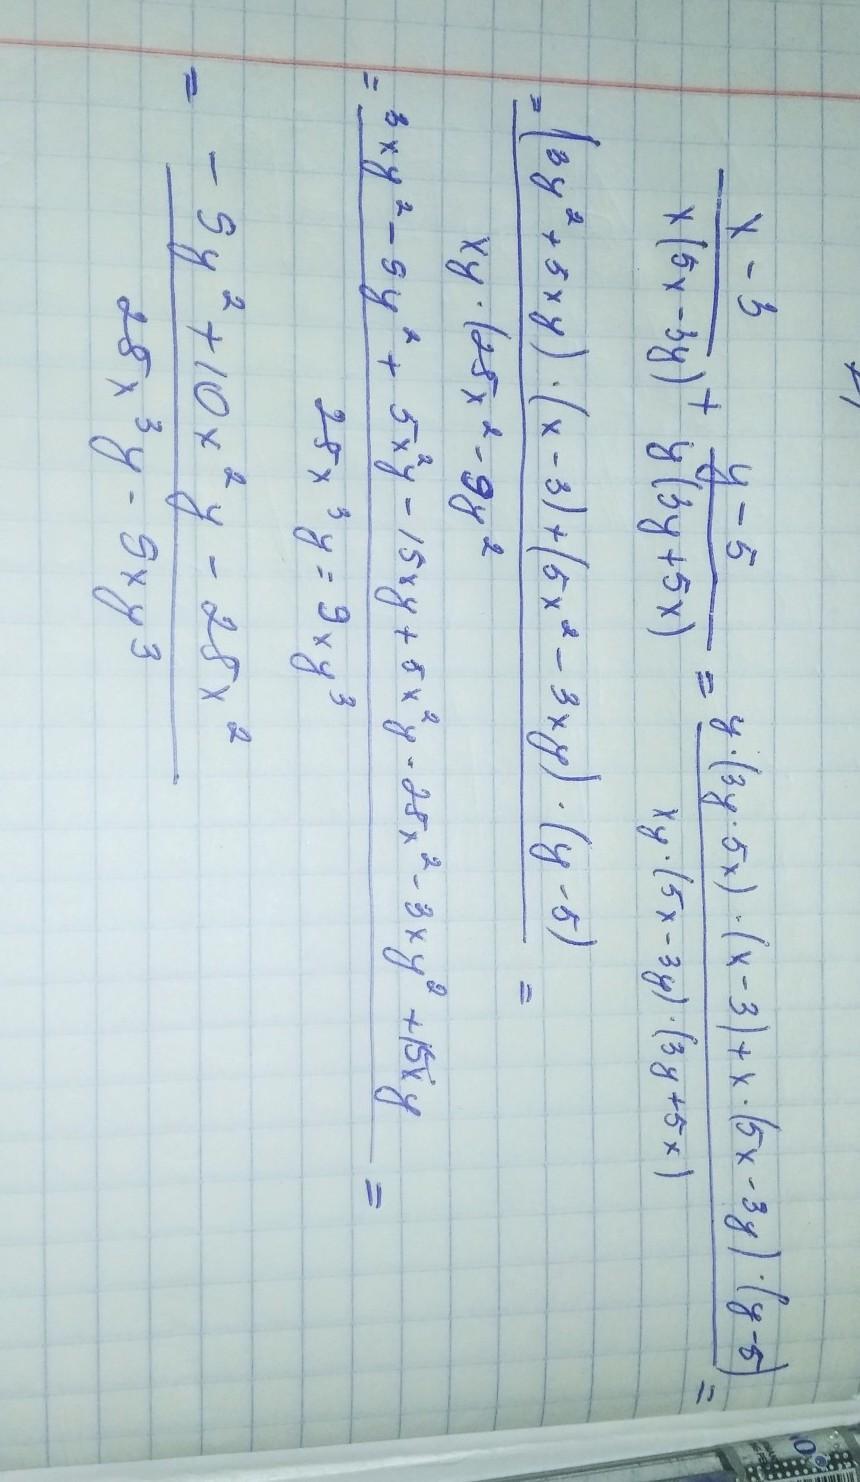 x - 3 y - 5 y · (3y · 5x) · (x - 3) + x · (5x - 3y) · (y - 5)
――― + ――― = ――― =
x (5x - 3y) y (3y + 5x) xy · (5x - 3y) · (3y + 5x)
= (3y² + 5xy) · (x - 3) + (5x² - 3xy) · (y - 5) =
xy · (25x² - 9y²
= 3xy² - 9y² + 5x²y - 15xy + 5x²y - 25x² - 3xy² + 15xy =
25x³y = 9xy³
= - 9y² + 10x²y - 25x²
25x³y - 9xy³